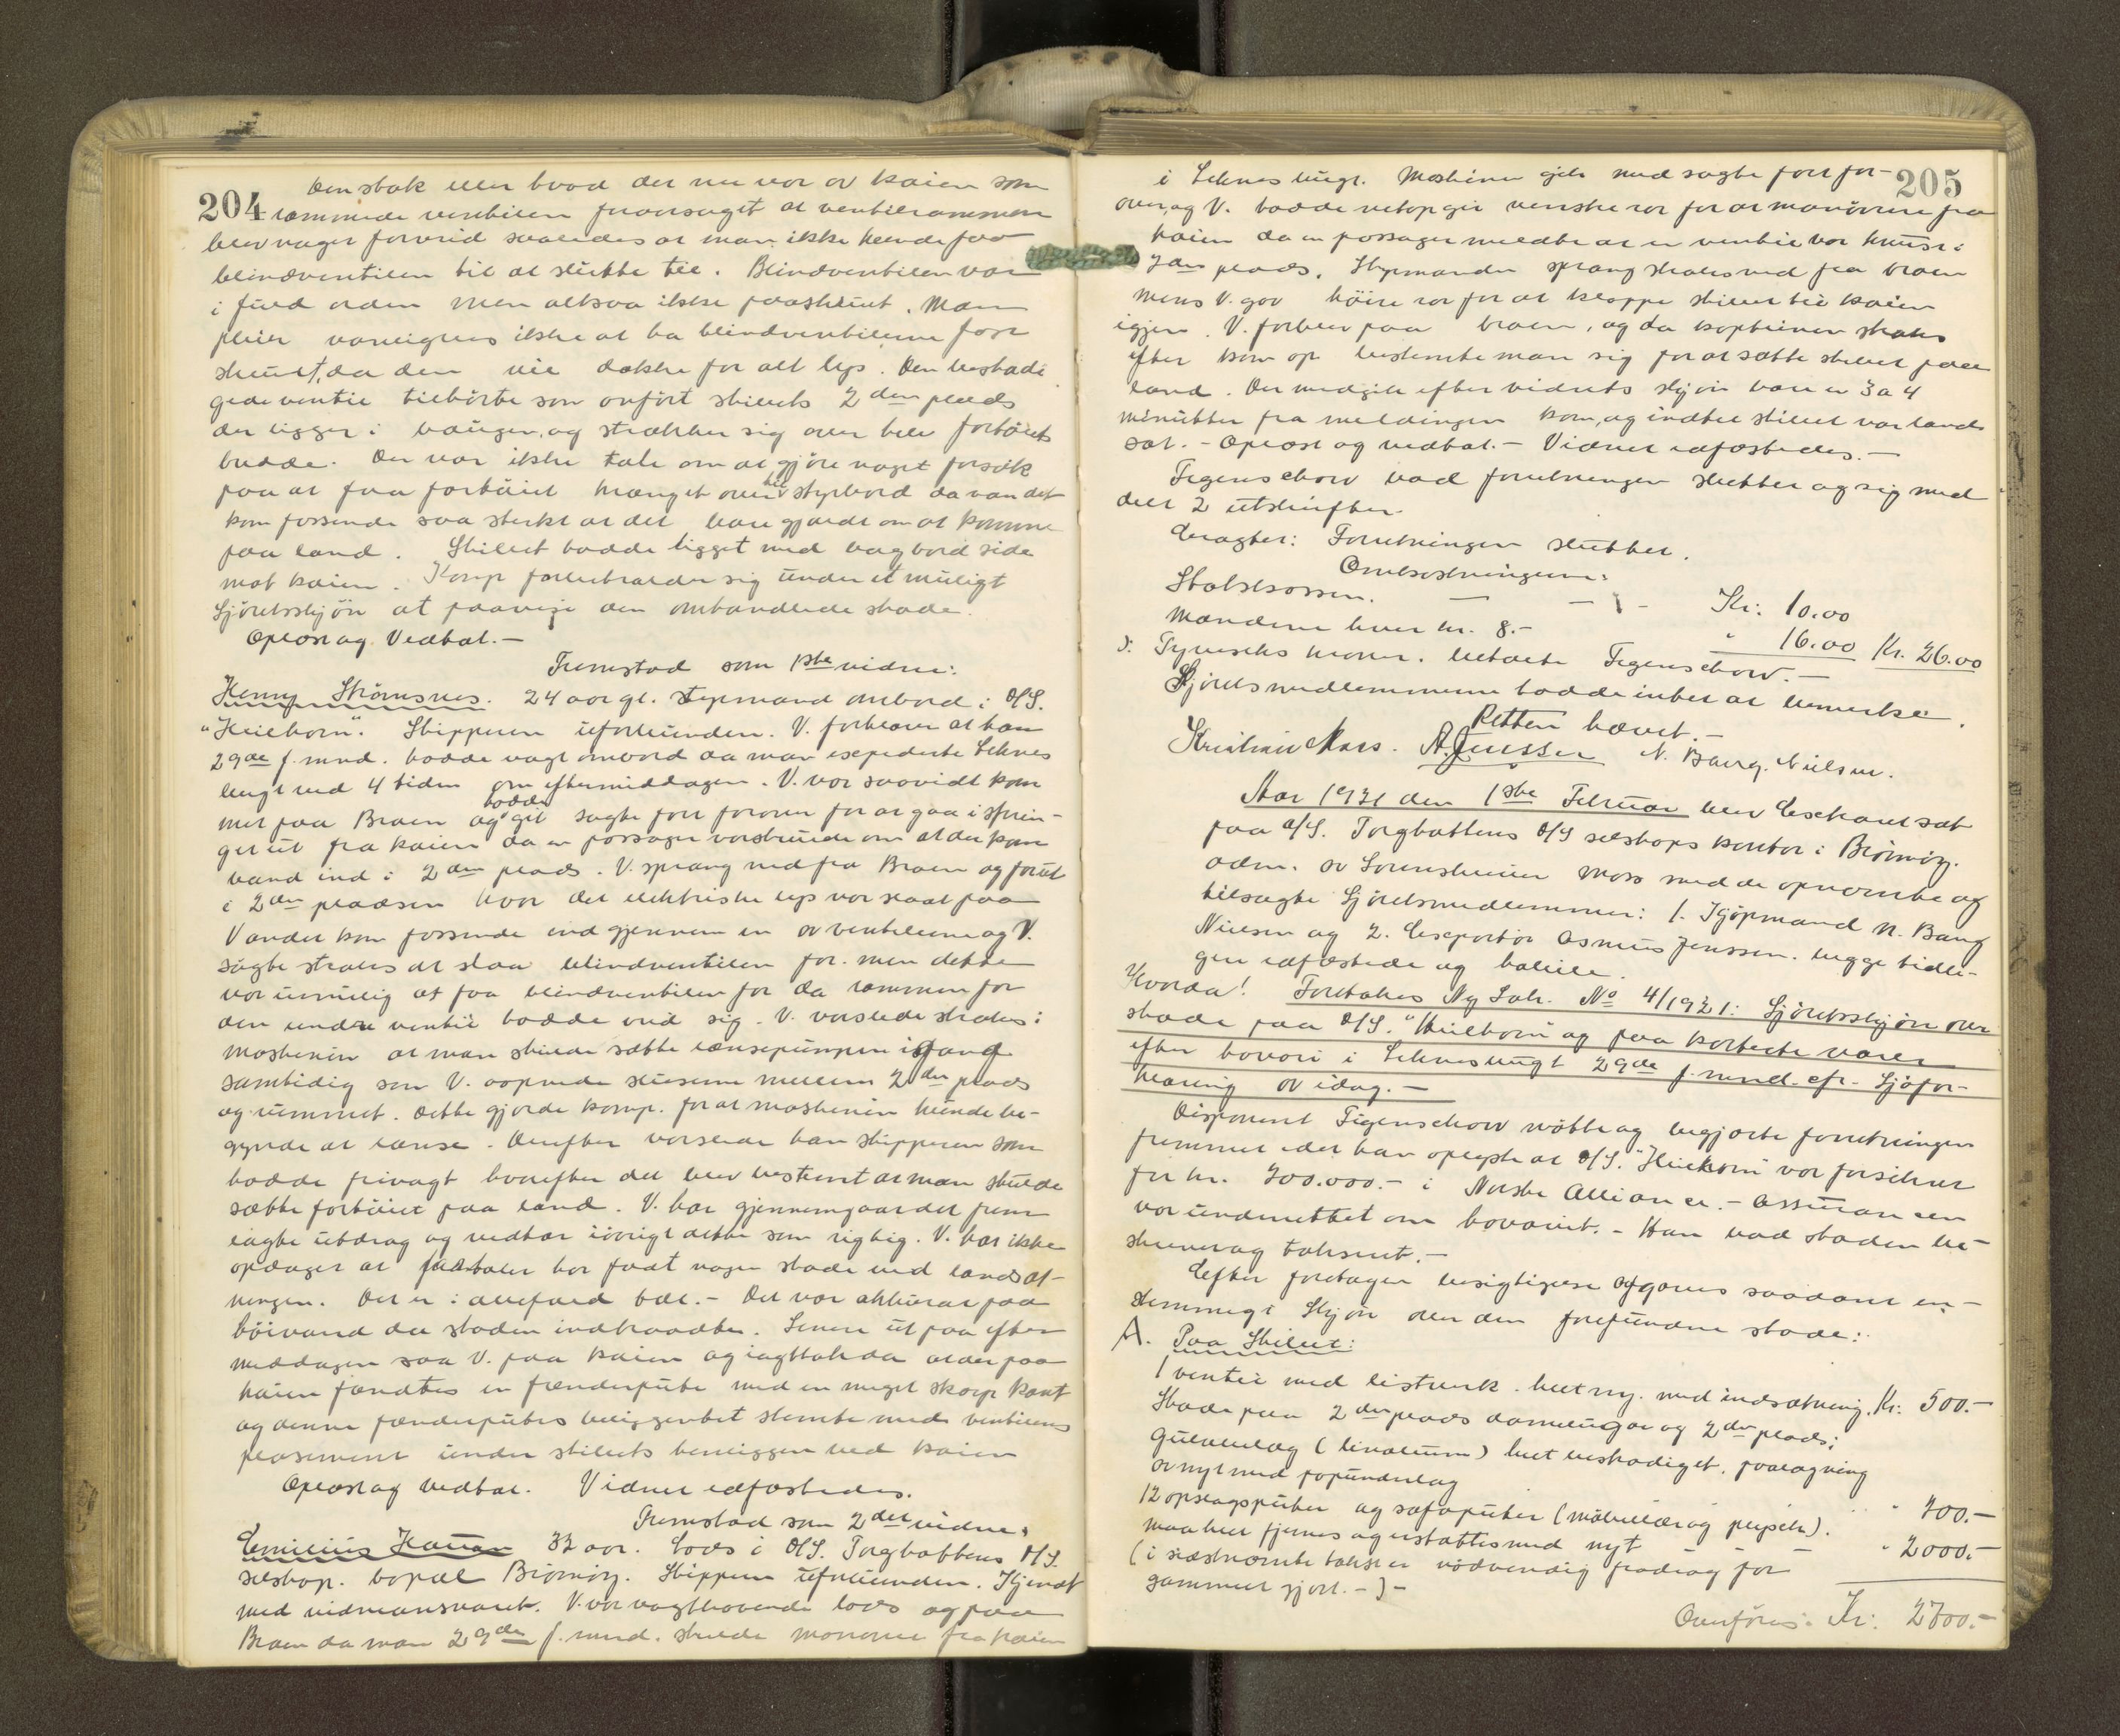 204
Den stok eller hvad det nu var av kaien som
rammede ventilen foraarsaget at ventilrammen
blev noget forvrid saaledes at man ikke kunde faa
blindventilen til at slutte til. Blindventilen var
i fuld orden men altsaa ikke paaskruet. Man
pleier vanligvis ikke at ha blindventilerne fast
skruet, da den vil dække for alt lys. Den beskadi
gede ventil tilhørte som anført skibets 2den plads
der ligger i baugen, og strækker sig over hele fartøiets
bredde. Der var ikke tale om at gjøre noget forsøk
paa at faa fartøiet krænget over til styrbord da vandet
kom fossende saa sterkt at det bare gjaldt om at komme
paa land. Skibet hadde ligget med bagbord side
mot kaien. Komp forbeholder sig under et muligt
Sjøretsskjøn at paavise den ombandlede skade.
Oplæst og Vedtat.-
Fremstod som 1ste vidne:
Henry Strømsnes. 24 aar gl. Styrmand ombord i D/S.
"Heilhorn". Skipperen ubeslegtet. V. forklarer at han
29de f. mnd. hadde vagt ombord da man expederte Leknes
brugt ved 4 tiden om eftermiddagen. V. var saavidt kom
met paa Broen og hadde git sagte fart forover for at gaa i sprin-
get ut fra kaien da en passager varskudde om at der kom
vand ind i 2den plads. V. sprang ned fra Broen og forut
i 2den pladsen hvor det elektriske lys var slaat paa
Vandet kom fossende ind gjennem en av ventilerne og V.
søgte straks at slaa blindventilen for. men dette
var umulig at faa blindventilen for da rammen for
den andre ventil hadde vrid sig. V. varslede straks i
maskinen at man skulde sætte lænsepumpen igang
samtidig som V. aapnede sluserne mellem 2den plads
og rummet. Dette gjorde komp. for at maskinen kunde be-
gynde at lænse. Derefter varslede han skipperen som
hadde frivagt hvorefter det blev bestemt at man skulde
sætte fartøiet paa land. V. har gjennemgaat det frem
lagte utdrag og vedtar iøvrigt dette som rigtig. V. har ikke
opdaget at fartøiet har faat nogen skade ved landsæt-
ningen. Det er i allefald tæt.- Det var akkurat paa
høivand da skaden indtraadte. Senere ut paa efter
middagen saa V. paa kaien og iagttok da at der paa
kaien fandtes en fenderpute med en meget skarp kant
og denne fenderputes beliggenhet stemte med ventilens
plasement under skibets henliggen ved kaien
Oplæst og vedtat. Vidnet edfæstedes.
Fremstod som 2det vidne:
Emilius Hauan 32 aar. Lods i D/S. Torghattens D/S.
selskap. bopæl Brønnøy. Skipperen ubeslegtet. Kjendt
med vidneansvaret. V. var vagthavende lods og paa
Broen da man 29de f. mnd. skulde manøvre fra kaien
205
i Leknes brugt. Maskinen gik med sagte fart for-
over, og V. hadde netop git venstre ror for at manøvrere fra
kaien da en passager meldte at en ventil var knust i
2den plads. Styrmanden sprang straks ned fra broen
mens V. gav høire ror for at klappe skibet til kaien
igjen. V. forblev paa broen, og da kapteinen straks
efter kom op bestemte man sig for at sætte skibet paa
land. Der medgik efter vidnets skjøn bare en 3 a 4
minutter fra meldingen kom, og indtil skibet var land
sat.- Oplæst og vedtat.- Vidnet edfæstedes.-
Figenschow bad forretningen sluttet og sig med
delt 2 utskrifter.
Eragtet: Forretningen sluttet.
Omkostningerne:
Statskassen. — — Kr. 10.00
Mændene hver kr. 8.- " 16.00 Kr. 26.00
betalte Figenschow.-
Sjøretsmedlemmerne hadde intet at bemerke.
Retten hævet.-
Kristian Moss. A. Jenssen N. Bang. Nielsen.
Aar 1921 den 1ste Februar blev Sjøret sat
paa A/S. Torghattens D/S selskaps kontor i Brønnøy.
adm. av Lensmand Moss med de opnævnte og
tilsagte Sjøretsmedlemmer: 1. Kjøpmand N. Bang
Nielsen og 2. Ekspeditør Asmus Jenssen. begge tidli-
gere edfæstede og habile.
Hvorda! Foretokes Ny Sak. No 4/1921: Sjøretsskjøn over
skade paa D/S. "Heilhorn" og paa lastede varer
efter havari i Leknesbrugt 29de f. mnd. efr. Sjøfor-
klaring av idag.-
Disponent Figenschow møtte og begjærte forretningen
fremmet idet han oplyste at D/S. "Heilhorn" var forsikret
for kr. 400.000.- i Norske Alliance.- Assurancen
var underrettet om havariet.- Han bad skaden be-
skrevet og taksert.-
Efter foretagen besigtigelse avgaves saadant en-
stemmigt Skjøn over den forefundne skade:
A. Paa Skibet:
1 ventil med listverk. helt ny. med indsætning. Kr. 500.-
Skade paa 2den plads damelugar og 2den plads:
Gulvbelæg (linoleum) helt beskadiget. paalægning
av nyt med papunderlag " 200.-
12 opslagsputer og sofaputer (møbellær og plysch).
maa helt fjernes og erstattes med nyt " 2000.-
(i sidstnævnte takst er nødvendig fradrag for
gammelt gjort.-)-
Overføres: Kr. 2700.-